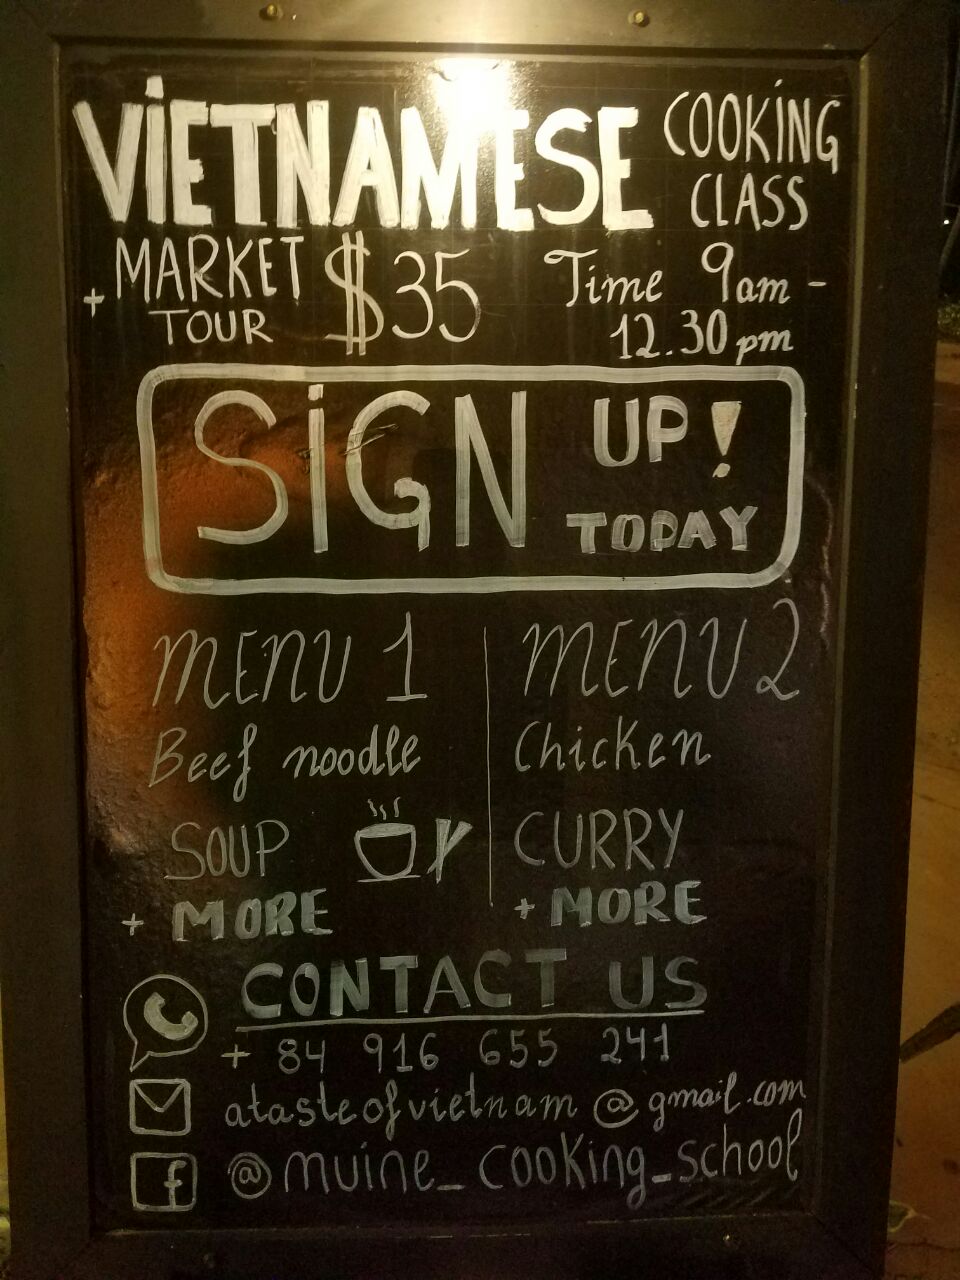 VIETNAMESE COOKING CLASS
+ MARKET TOUR $35 Time 9am - 12.30 pm
SIGN UP! TODAY
MENU 1
Beef noodle
SOUP
+ MORE
MENU 2
Chicken
CURRY
+ MORE
CONTACT US
+ 84 916 655 241
atasteofvietnam@gmail.com
f @muine_cooking_school